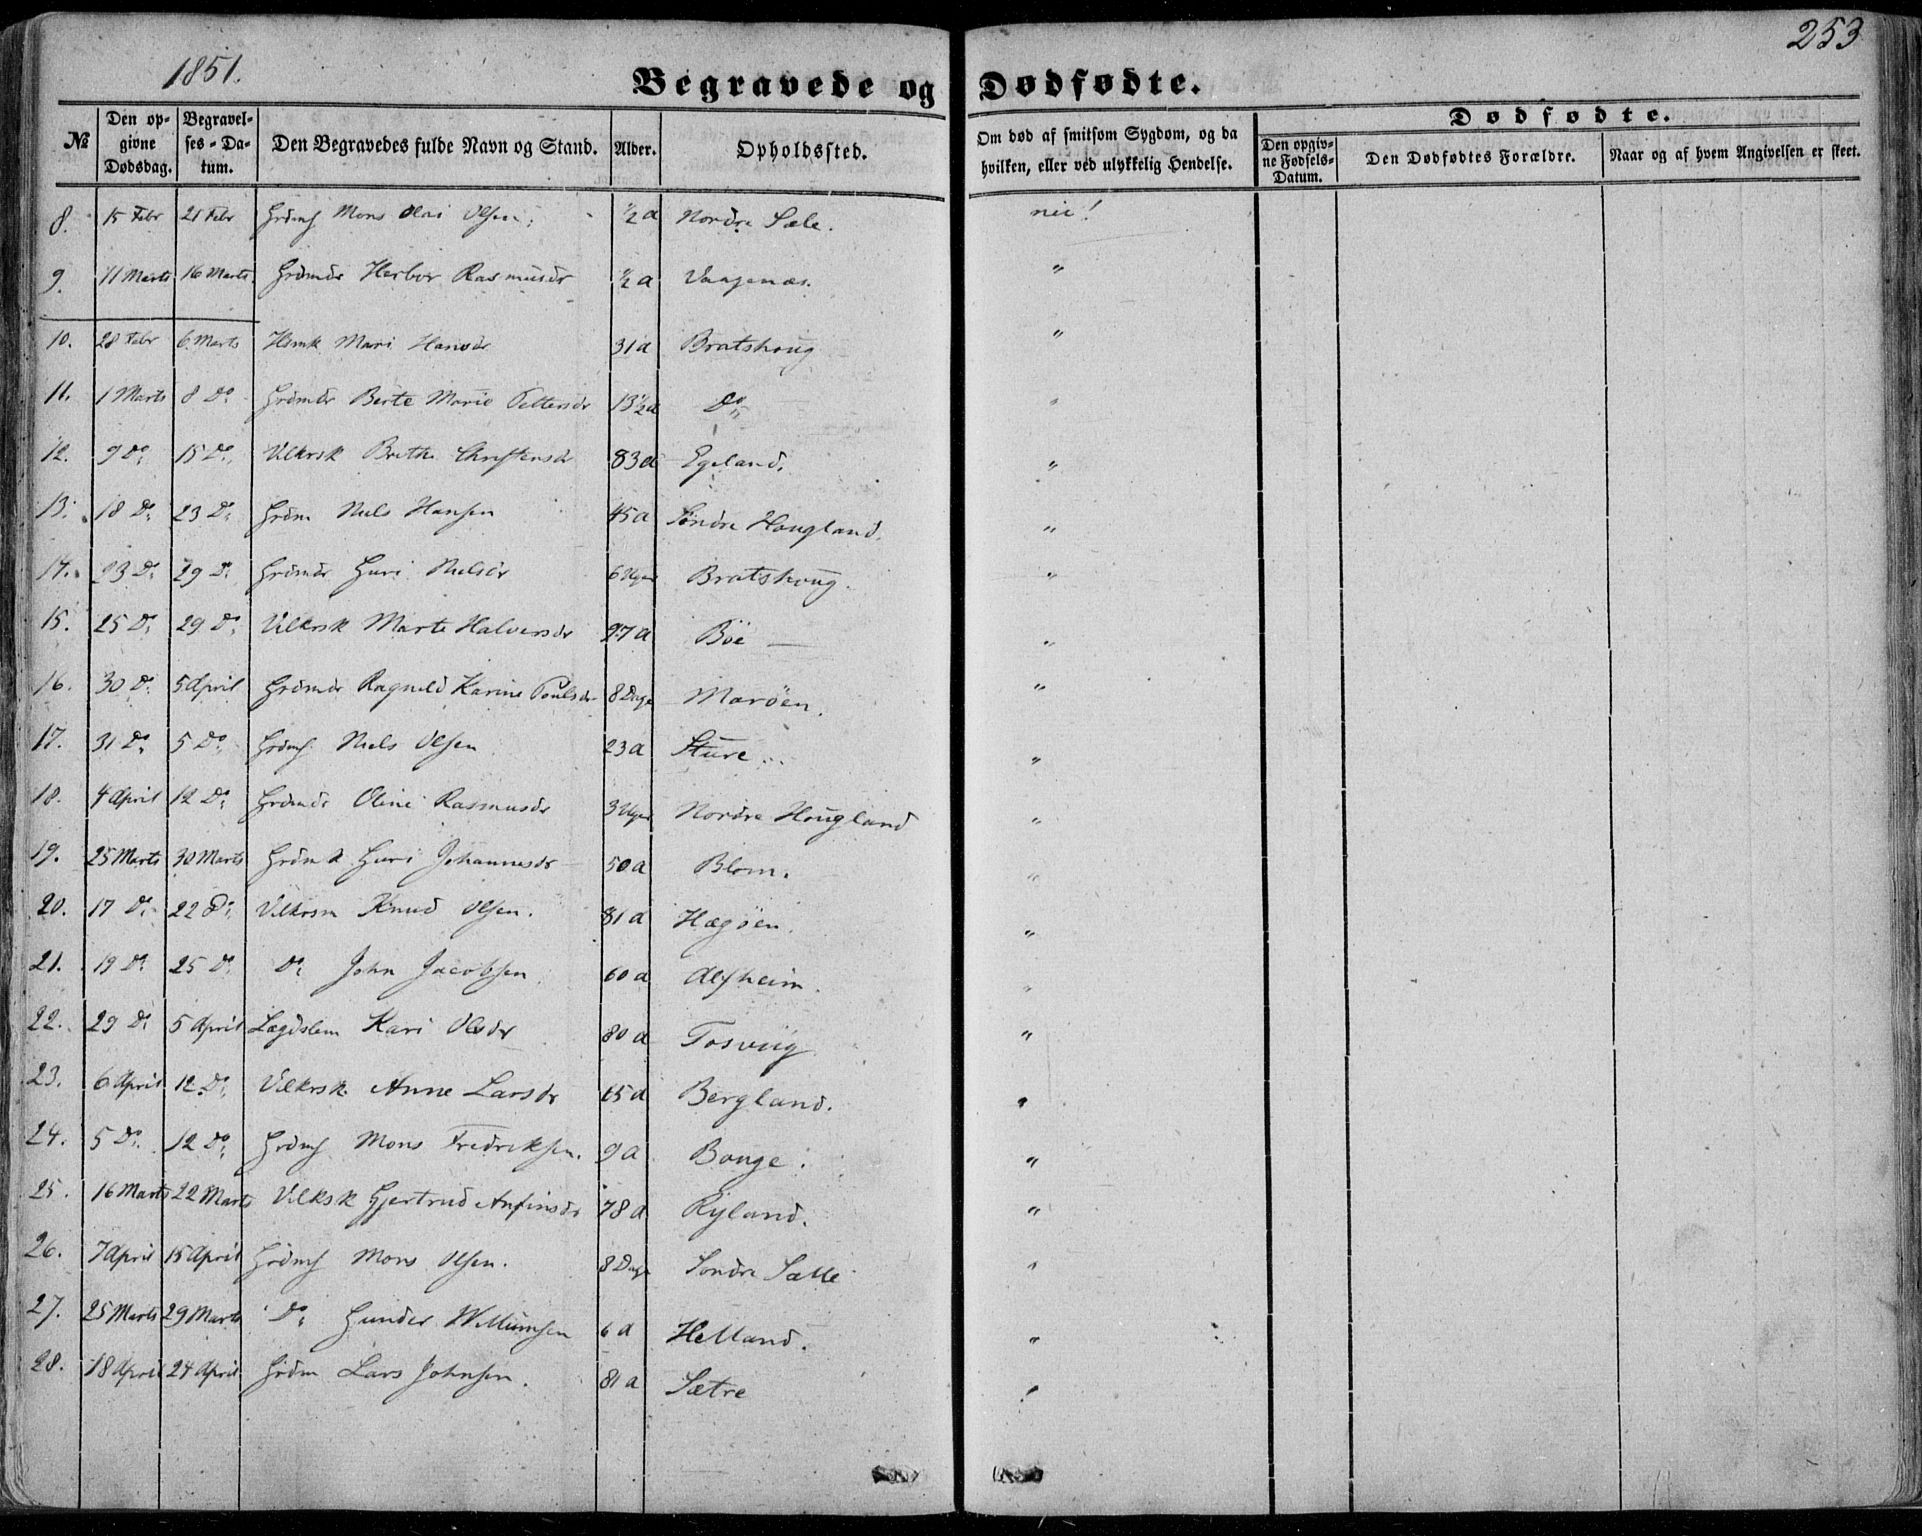 1851.
253
Begravede og Dødfødte.
№
Den opgivne Dødsdag.
Begravelses-Datum.
Den Begravedes fulde Navn og Stand.
Alder.
Opholdssted.
Om død af smitsom Sygdom, og da hvilken, eller ved ulykkelig Hendelse.
Dødfødte.
Den opgivne Fødsels-Datum.
Den Dødfødtes Forældre.
Naar og af hvem Angivelsen er skeet.
8. 15 Febr 21 Febr Grdms Mons Olai Olsen. ½ a Nordre Sæle. nei!
9. 11 Marts 16 Marts Grdmdr Herbor Rasmusdr ½ a Vaagenæs. "
10. 28 Febr 6 Marts Hsmk Mari Hansdr 31 a Bratshoug "
11. 1 Marts 8 Do Grdmdr Berte Marie Pettersdr 13½ a Do "
12. 9 Do 15 Do Vilkrsk Brithe Christensdr 83 a Egeland. "
13. 18 Do 23 Do Grdm Niels Hansen 45 a Söndre Hougland. "
14. 23 Do 29 Do Grdmdr Guri Nielsdr 6 Uger Bratshoug. "
15. 25 Do 29 Do Vilkrsk Marte Halversdr 97 a Böe "
16. 30 Do 5 April Grdmdr Ragnild Karine Poulsdr 8 Dage Maröen. "
17. 31 Do 5 Do Grdms Niels Olsen 23 a Sture "
18. 4 April 12 Do Grdmdr Oline Rasmusdr 3 Uger Nordre Hougland "
19. 25 Marts 30 Marts Grdmk Guri Johannesdr 50 a Blom. "
20. 17 Do 22 Do Vilkrsm Knud Olsen. 81 a Hægöen. "
21. 19 Do 25 Do Do John Jacobsen 60 a Alfheim. "
22. 29 Do 5 April Lægdslem Kari Olsdr 80 a Tosviig "
23. 6 April 12 Do Vilkrsk. Anne Larsdr 65 a Bergland. "
24. 5 Do 12 Do Grdms Mons Fredriksen. 9 a Bouge. "
25. 16 Marts 22 Marts Vilksk Gjertrud Anfinsdr 78 a Ryland. "
26. 7 April 15 April Grdms Mons Olsen. 8 Dage Söndre Sælle "
27. 25 Marts 29 Marts Do Gunder Willumsen 6 a Helland. "
28. 18 April 24 April Grdm Lars Johnsen. 81 a Sætre "